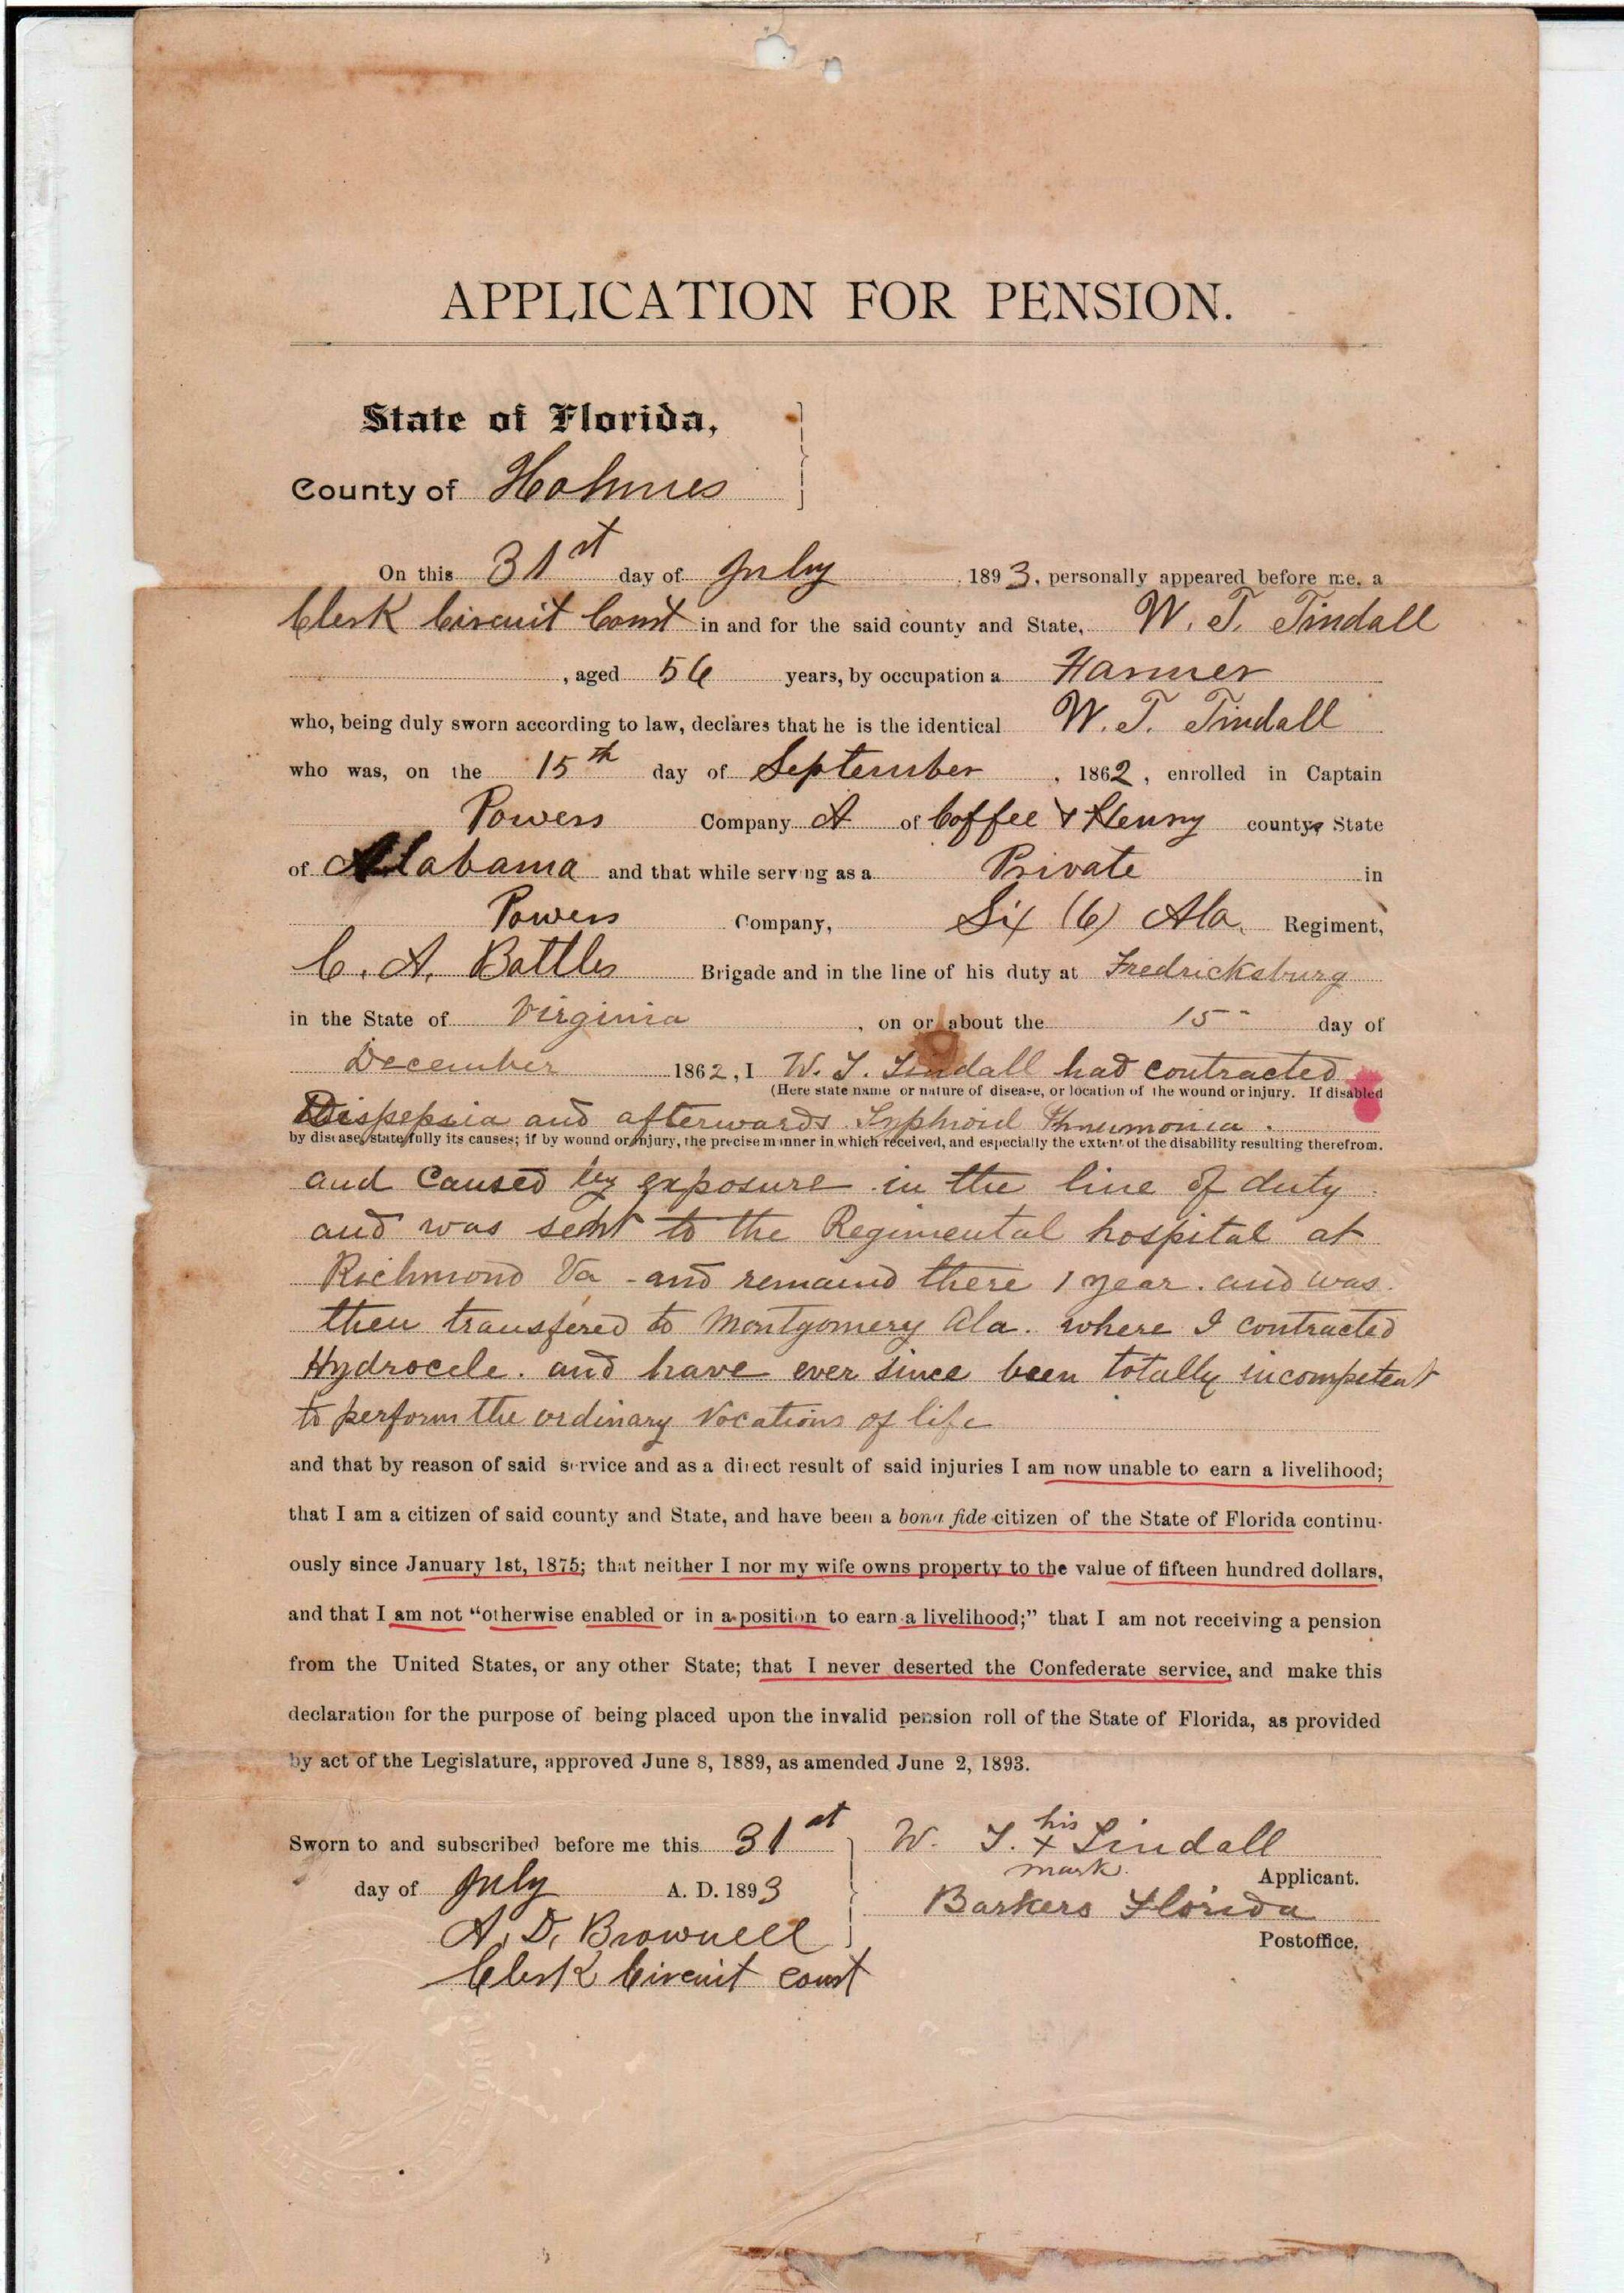 APPLICATION FOR PENSION.
State of Florida,
County of Holmes
On this 31st day of July, 1893, personally appeared before me, a
Clerk Circuit Court in and for the said county and State, W. T. Tindall
, aged 56 years, by occupation a Farmer
who, being duly sworn according to law, declares that he is the identical W. T. Tindall
who was, on the 15th day of September, 1862, enrolled in Captain
Powers Company A of Coffee & Henry county, State
of Alabama and that while serving as a Private in
Powers Company, Six (6) Ala. Regiment,
C. A. Battles Brigade and in the line of his duty at Fredricksburg
in the State of Virginia, on or about the 15 day of
December 1862, I W. T. Tindall had contracted
(Here state name or nature of disease, or location of the wound or injury. If disabled
Dispepsia and afterwards Typhoid Phneumonia.
by disease, state fully its causes; if by wound or injury, the precise manner in which received, and especially the extent of the disability resulting therefrom.
and caused by exposure in the line of duty
and was sent to the Regimental hospital at
Richmond Va - and remaind there 1 year. and was
then transfered to Montgomery Ala. where I contracted
Hydrocele. and have ever since been totally incompetent
to perform the ordinary vocations of life
and that by reason of said service and as a direct result of said injuries I am now unable to earn a livelihood;
that I am a citizen of said county and State, and have been a bona fide citizen of the State of Florida continu-
ously since January 1st, 1875; that neither I nor my wife owns property to the value of fifteen hundred dollars,
and that I am not "otherwise enabled or in a position to earn a livelihood;" that I am not receiving a pension
from the United States, or any other State; that I never deserted the Confederate service, and make this
declaration for the purpose of being placed upon the invalid pension roll of the State of Florida, as provided
by act of the Legislature, approved June 8, 1889, as amended June 2, 1893.
Sworn to and subscribed before me this 31st
day of July A. D. 1893
A. D. Brownell
Clerk Circuit Court
his
W. T. x Tindall
mark.
Applicant.
Barkers Florida
Postoffice.